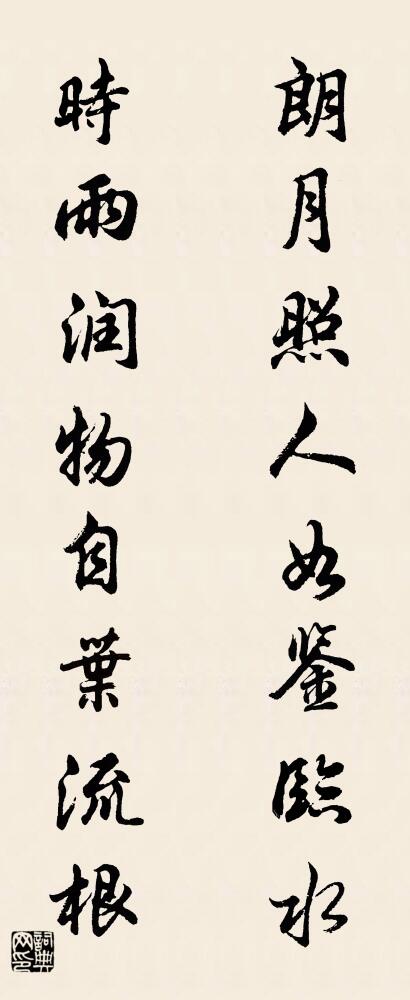 朗月照人如鉴臨水
時雨润物自葉流根
詞典网印